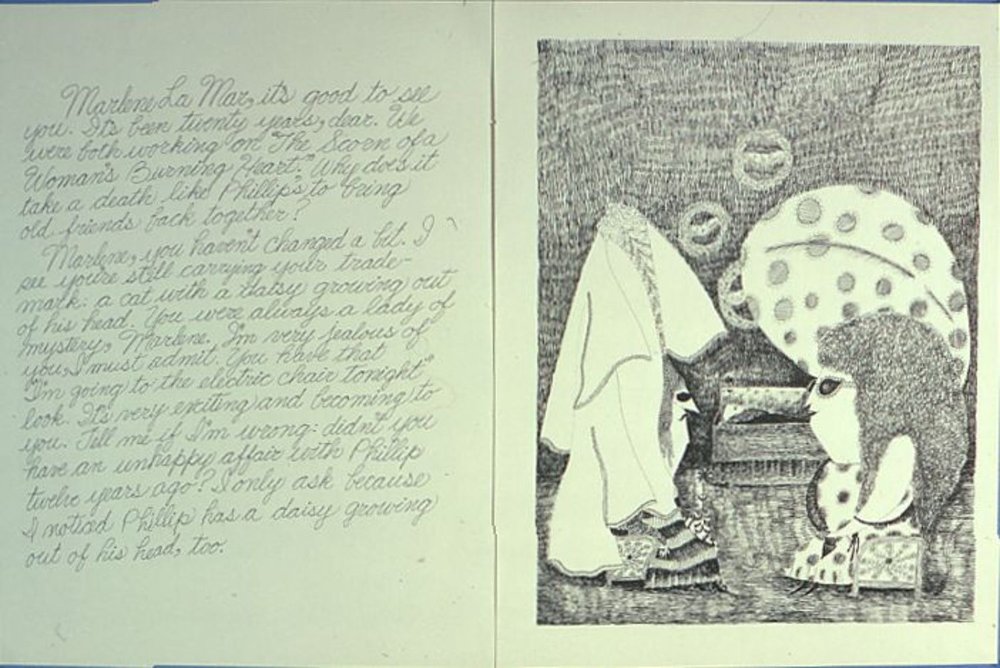 Marlene La Mar, it's good to see
you. It's been twenty years, dear. We
were both working on "The Scorn of a
Woman's Burning Heart." Why does it
take a death like Phillip's to bring
old friends back together?
Marlene, you haven't changed a bit. I
see you're still carrying your trade-
mark: a cat with a daisy growing out
of his head. You were always a lady of
mystery, Marlene. I'm very jealous of
you, I must admit. You have that
"I'm going to the electric chair tonight"
look. It's very exciting and becoming to
you. Tell me if I'm wrong: didn't you
have an unhappy affair with Phillip
twelve years ago? I only ask because
I noticed Phillip has a daisy growing
out of his head, too.